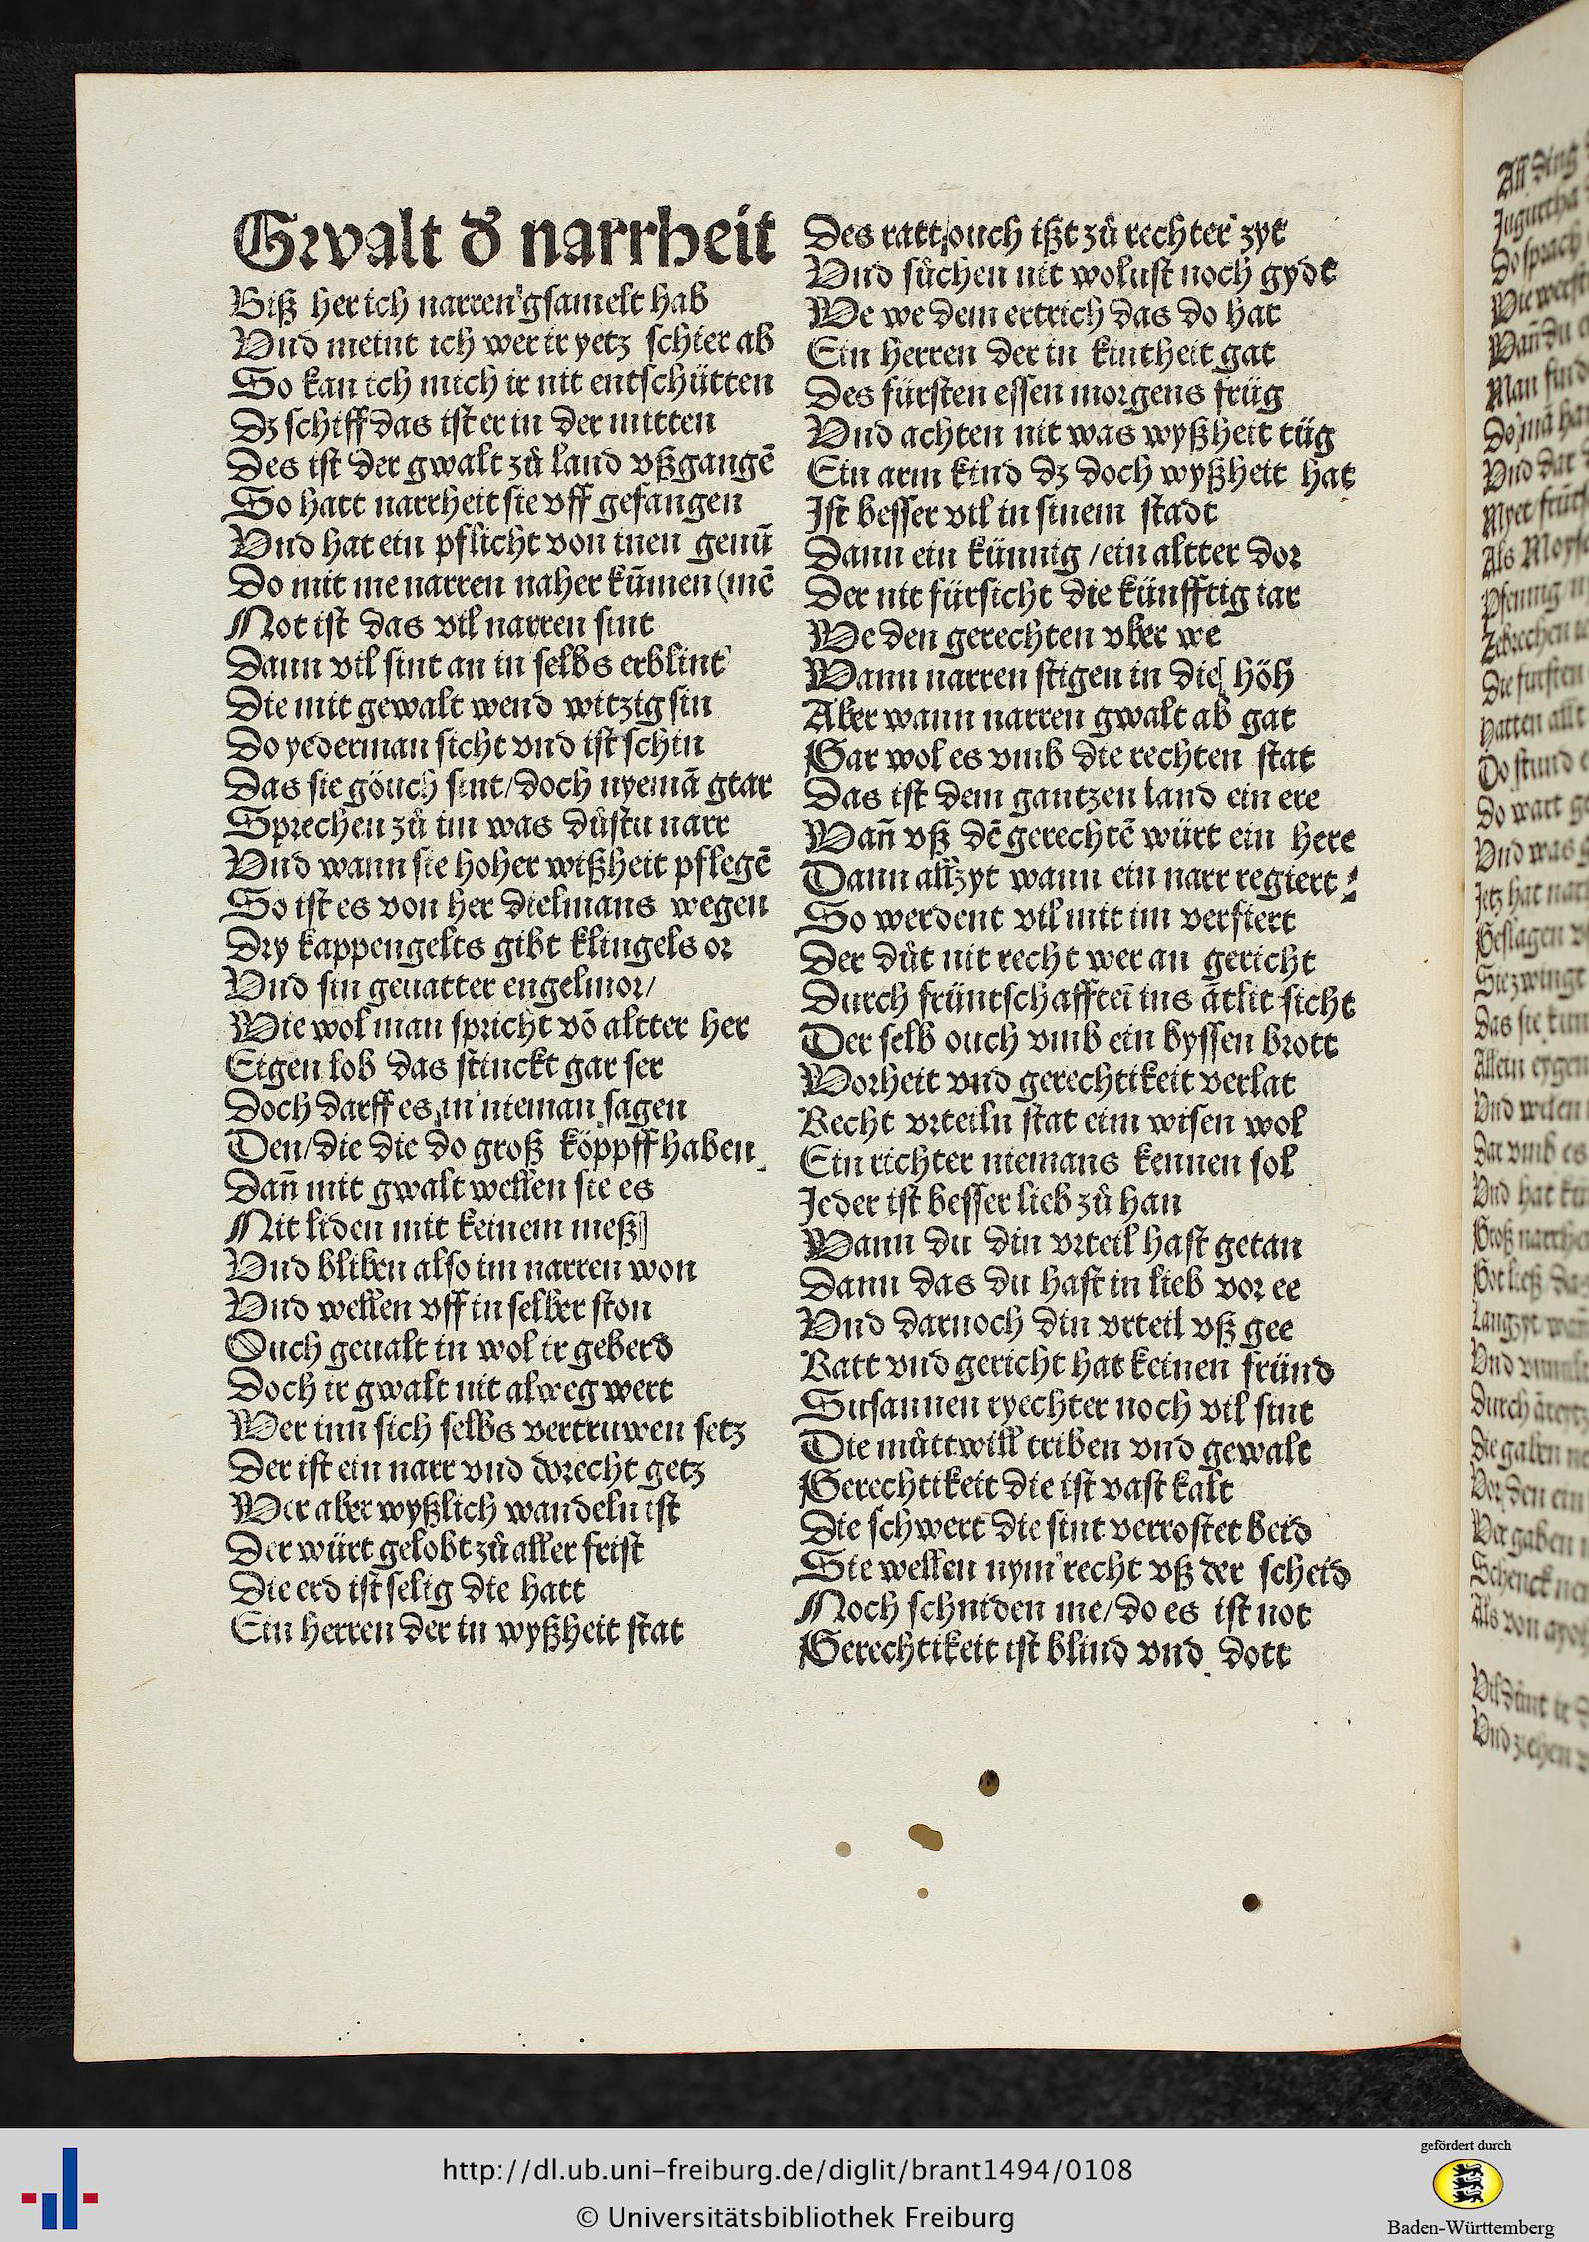 Gewalt d̕ narrheit
Biß her ich narren gsamelt hab
Vnd meint ich wer ir yetz schier ab
So kan ich mich ir nit entschütten
Dz schiff das ist er in der mitten
Des ist der gwalt zů land vßgangē
So hatt narrheit sie vff gefangen
Vnd hat ein pflicht von inen genū
Do mit me narren naher kūmen (mē
Not ist das vil narren sint
Dann vil sint an in selbs erblint
Die mit gewalt wend witzig sin
Do yederman sicht vnd ist schin
Das sie göuch sint/doch nyemā gtar
Sprechen zů im was důstu narr
Vnd wann sie hoher wißheit pflegē
So ist es von her dielmans wegen
Dry kappengelts gibt klingels or
Vnd sin geuatter engelmor/
Wie wol man spricht vō altter her
Eigen lob das stinckt gar ser
Doch darff es in nieman sagen
Den/die die do groß köppff haben
Dañ mit gwalt wellen sie es
Nit liden mit keinem meß
Vnd bliben also im narren won
Vnd wellen vff in selber ston
Ouch geualt in wol ir geberd
Doch ir gwalt nit alweg wert
Wer inn sich selbs vertruwen setz
Der ist ein narr vnd dorecht getz
Wer aber wyßlich wandeln ist
Der würt gelobt zů aller frist
Die erd ist selig die hatt
Ein herren der in wyßheit stat
Des ratt ouch ißt zů rechter zyt
Vnd sůchen nit wolust noch gydt
We we dem ertrich das do hat
Ein herren der in kintheit gat
Des fürsten essen morgens früg
Vnd achten nit was wyßheit tüg
Ein arm kind dz doch wyßheit hat
Ist besser vil in sinem stadt
Dann ein künnig/ein altter dor
Der nit fürsicht die künfftig iar
We den gerechten vber we
Wann narren stigen in die höh
Aber wann narren gwalt ab gat
Gar wol es vmb die rechten stat
Das ist dem gantzen land ein ere
Wañ vß dē gerechtē würt ein here
Dann allzyt wann ein narr regiert
So werdent vil mit im verfiert
Der důt nit recht wer an gericht
Durch früntschafft eī ins ātlit sicht
Der selb ouch vmb ein byssen brott
Worheit vnd gerechtikeit verlat
Recht vrteiln stat eim wisen wol
Ein richter niemans kennen sol
Jeder ist besser lieb zů han
Wann du din vrteil hast getan
Dann das du hast in lieb vor ee
Vnd darnoch din vrteil vß gee
Ratt vnd gericht hat keinen fründ
Susannen ryechter noch vil sint
Die můttwill triben vnd gewalt
Gerechtikeit die ist vast kalt
Die schwert die sint verrostet beid
Sie wellen nym recht vß der scheid
Noch schniden me/do es ist not
Gerechtikeit ist blind vnd dott
http://dl.ub.uni-freiburg.de/diglit/brant1494/0108
© Universitätsbibliothek Freiburg
gefördert durch
Baden-Württemberg